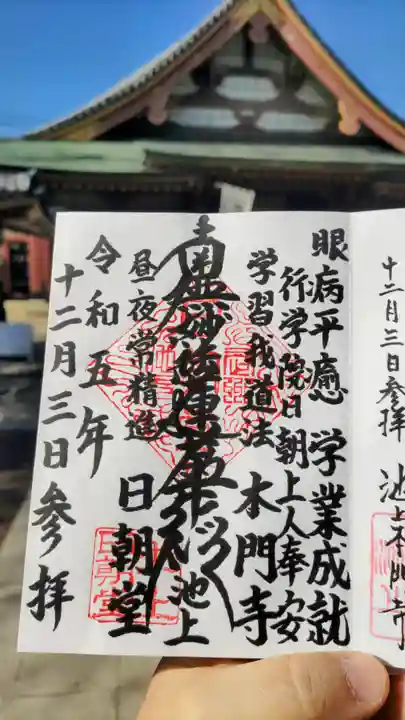 十二月三日参拝
池上本門寺
眼病平癒 学業成就
行学院日朝上人奉安
学習我道法 本門寺
南無妙法蓮華経 池上
昼夜常精進 日朝堂
令和五年
十二月三日参拝